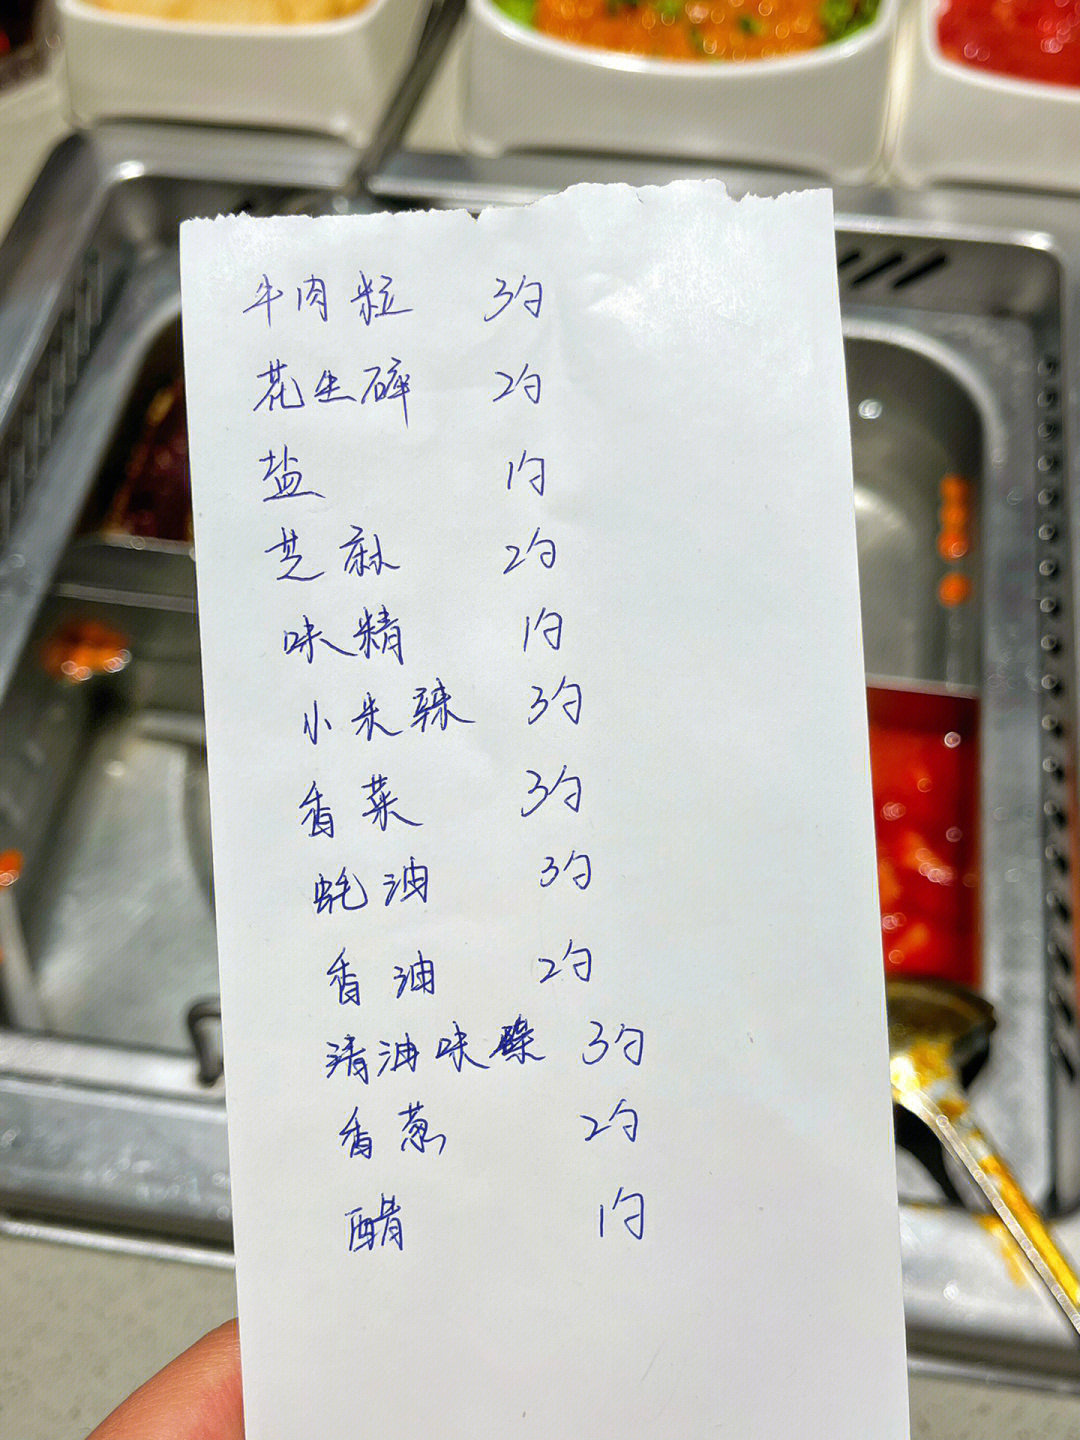 牛肉粒 3勺
花生碎 2勺
盐 1勺
芝麻 2勺
味精 1勺
小米辣 3勺
香菜 3勺
蚝油 3勺
香油 2勺
清油味碟 3勺
香葱 2勺
醋 1勺